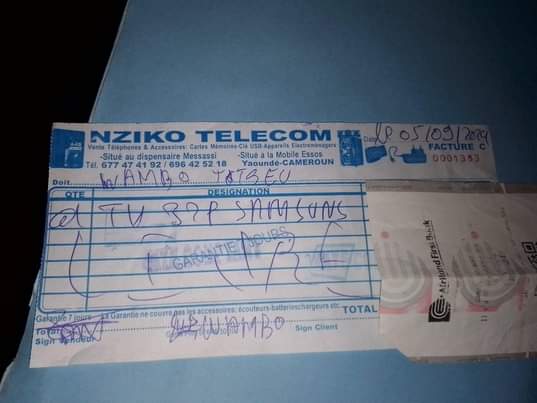 NZIKO TELECOM
Vente Téléphones & Accessoires: Cartes Mémoires-Clé USB-Appareils Electroménagers
-Situé au dispensaire Messassi -Situé à la Mobile Essos
Tél. 677 47 41 92 / 696 42 52 18 Yaoundé-CAMEROUN
Date 05/09/2024
FACTURE C
0001353
Doit WAMBO
QTE DESIGNATION
TV SAMSUNG
GARANTIE JOURS
Garantie 7 jours La Garantie ne couvre pas les accessoires: écouteurs-batteries chargeurs etc. TOTAL
Sign Vendeur WAMBO Sign Client
Afriland First Bank